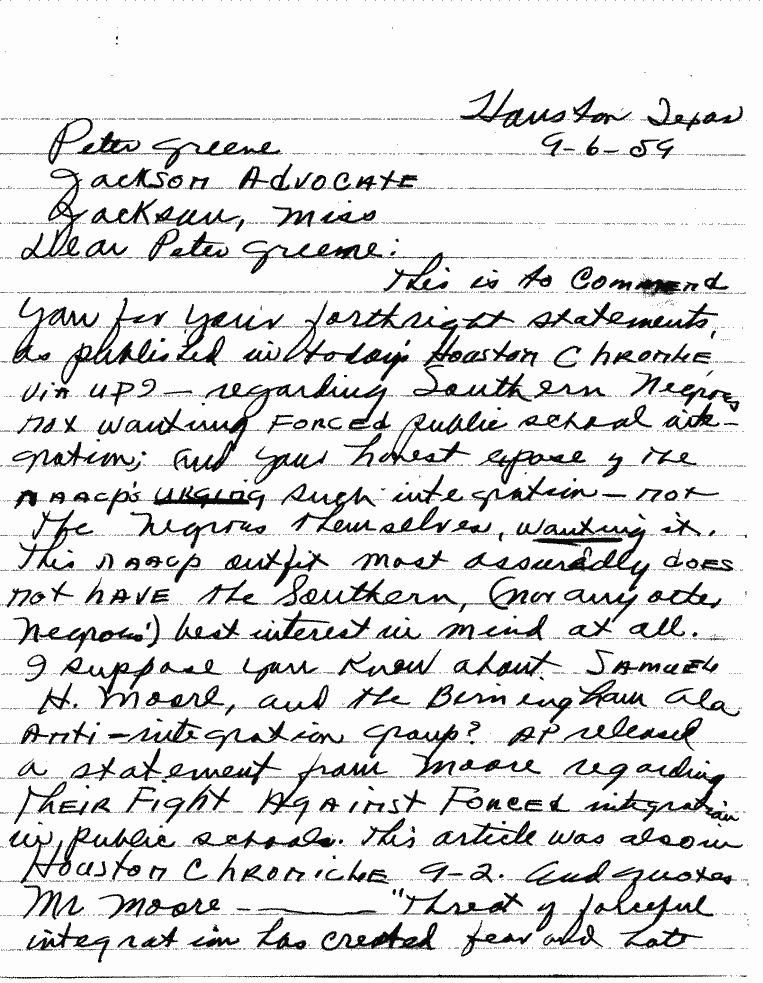 Houston Texas
9-6-59
Peter Greene
Jackson Advocate
Jackson, Miss
Dear Peter Greene:
This is to Commend
you for your forthright statements,
as published in today's Houston Chronicle,
via UPI — regarding Southern Negroes
not wanting FORCED public school inte-
gration; and your honest expose of the
NAACP's urging such integration — not
the Negroes themselves, wanting it.
This NAACP outfit most assuredly does
not have the Southern, (nor any other
Negroes') best interest in mind at all.
I suppose you know about Samuel
H. Moore, and the Birmingham Ala
Anti-integration group? AP released
a statement from Moore regarding
THEIR Fight Against Forced integration
in public schools. This article was also in
Houston Chronicle 9-2. And quotes
Mr Moore - ——— "Threat of forceful
integration has created fear and hate